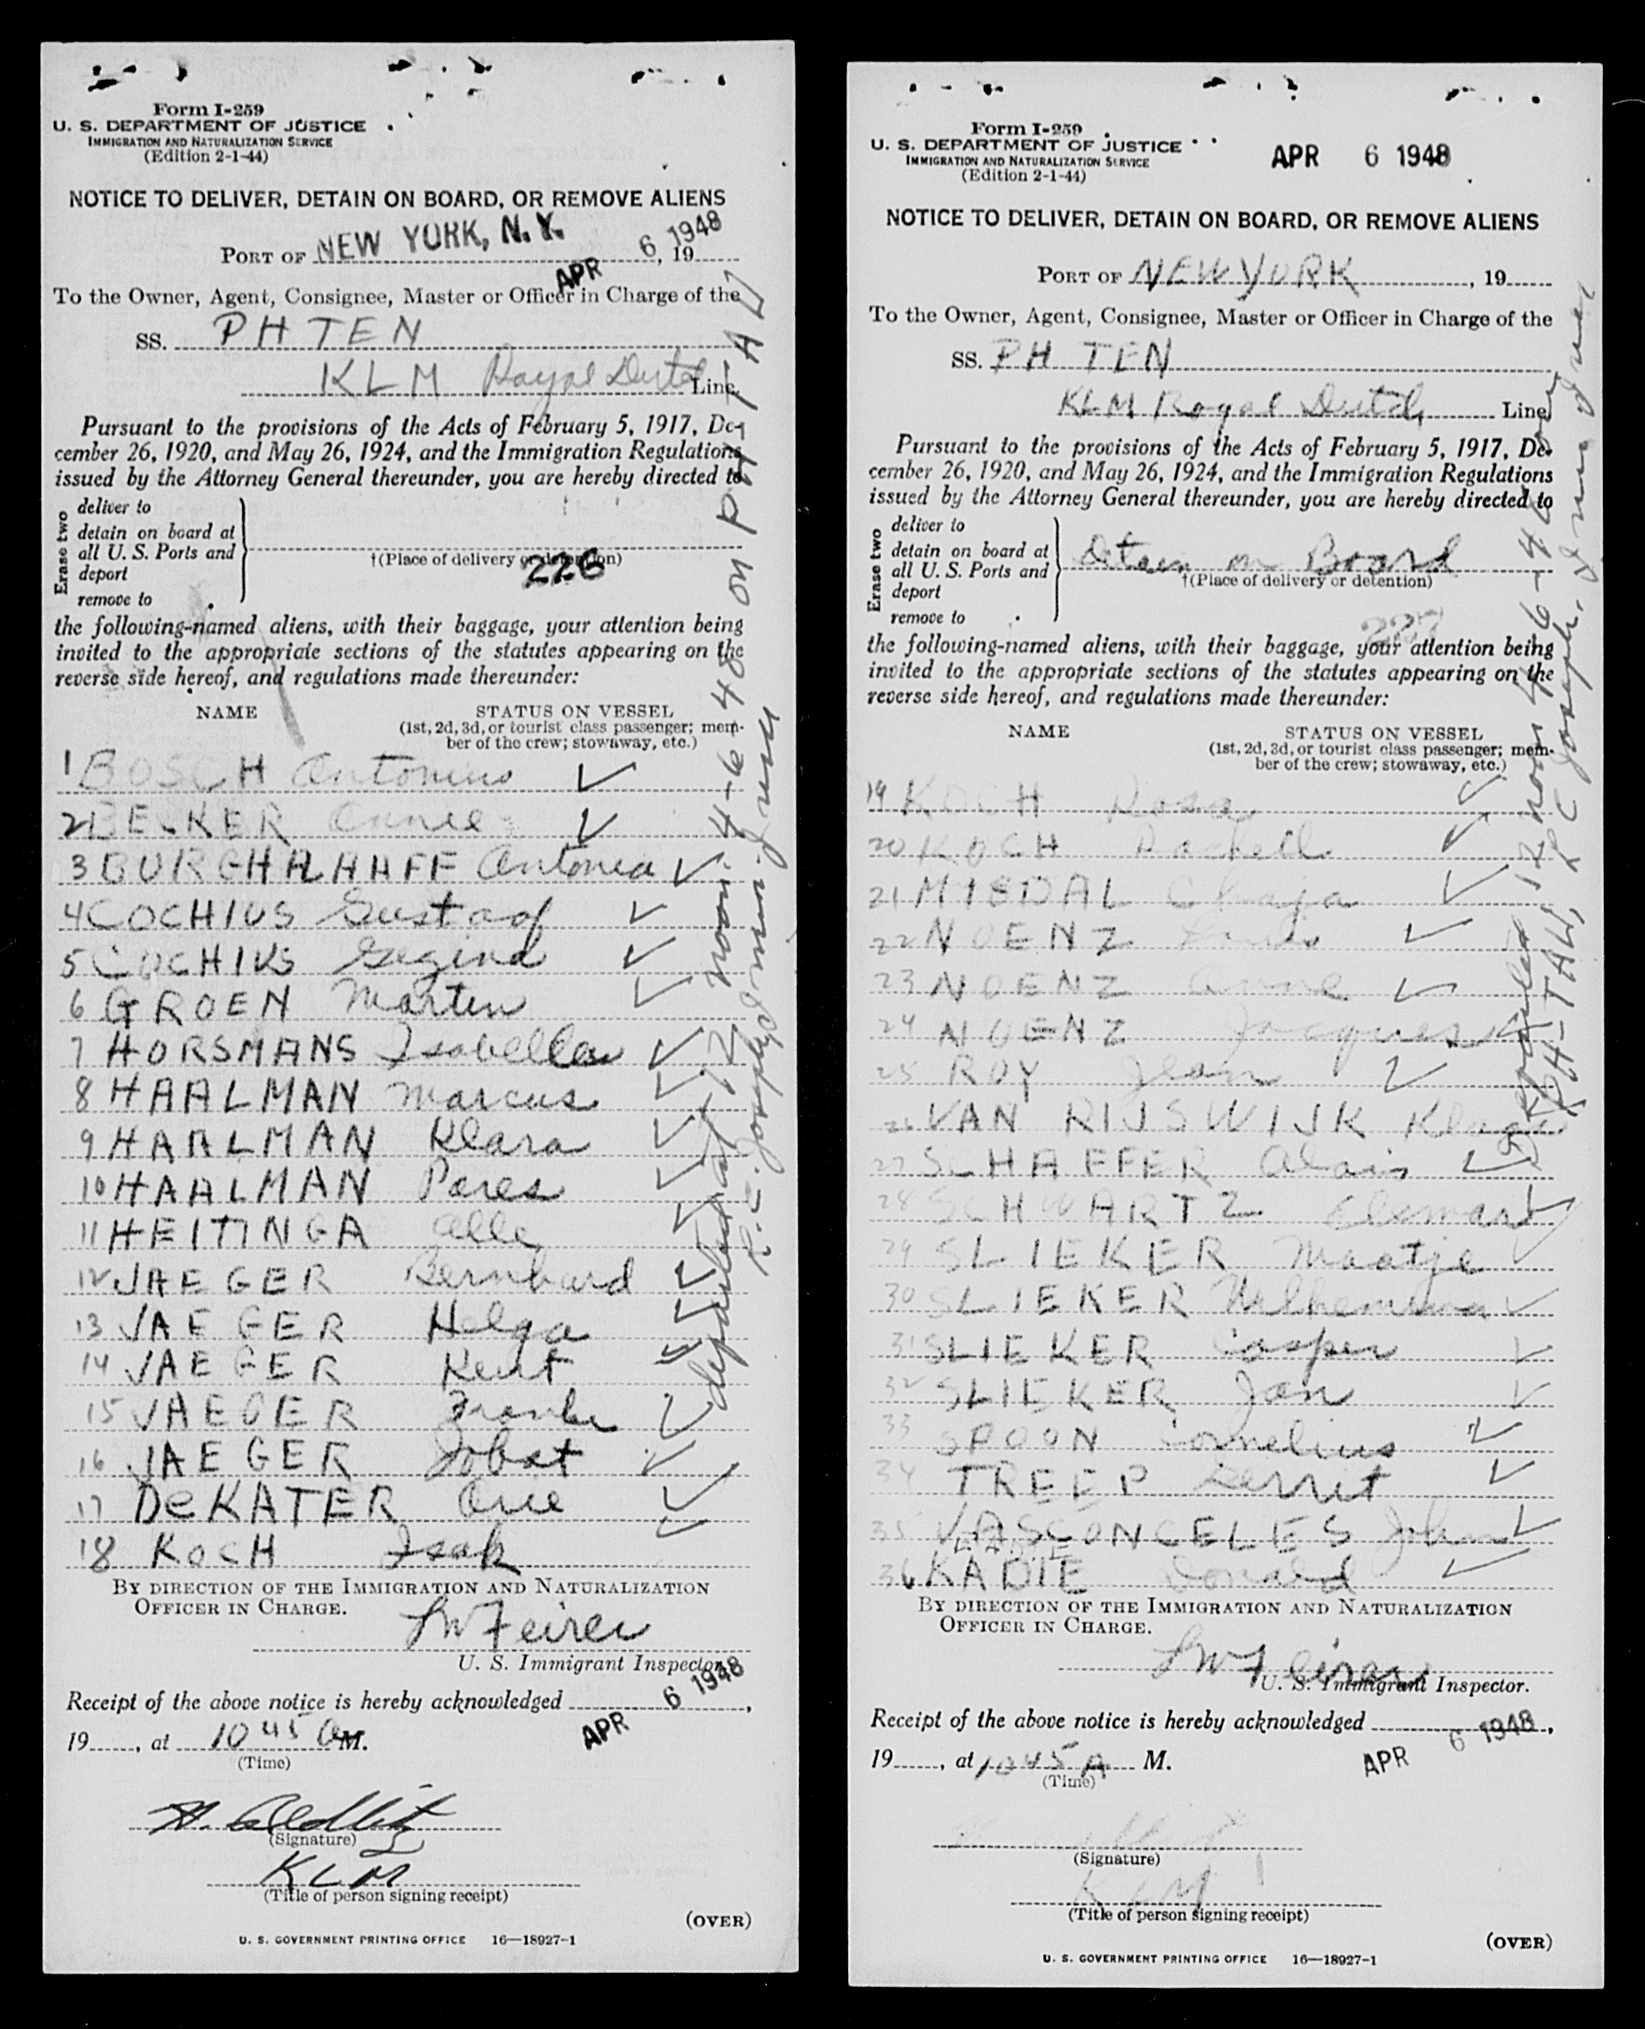 Form I-259
U. S. DEPARTMENT OF JUSTICE
IMMIGRATION AND NATURALIZATION SERVICE
(Edition 2-1-44)
NOTICE TO DELIVER, DETAIN ON BOARD, OR REMOVE ALIENS
PORT OF NEW YORK, N. Y. APR 6 1948, 19
To the Owner, Agent, Consignee, Master or Officer in Charge of the
SS. PH TEN
KLM Royal Dutch Line
Pursuant to the provisions of the Acts of February 5, 1917, De-
cember 26, 1920, and May 26, 1924, and the Immigration Regulations
issued by the Attorney General thereunder, you are hereby directed to
Erase two
deliver to
detain on board at
all U. S. Ports and
deport
remove to
†(Place of delivery or detention)
226
the following-named aliens, with their baggage, your attention being
invited to the appropriate sections of the statutes appearing on the
reverse side hereof, and regulations made thereunder:
NAME STATUS ON VESSEL
(1st, 2d, 3d, or tourist class passenger; mem-
ber of the crew; stowaway, etc.)
1 BOSCH Antonius ✓
2 BEKKER Annie ✓
3 BURGHALHAFF Antonia ✓
4 COCHIUS Gustaaf ✓
5 COCHIUS Gezina ✓
6 GROEN Marten ✓
7 HORSMANS Isabella ✓
8 HAALMAN Marcus ✓
9 HAALMAN Klara ✓
10 HAALMAN Pares ✓
11 HEITINGA Alle ✓
12 JAEGER Bernhard ✓
13 JAEGER Helga ✓
14 JAEGER Kent ✓
15 JAEGER Franke ✓
16 JAEGER Jobst ✓
17 DeKATER Arie ✓
18 KOCH Isak ✓
departed at 12 noon 4-6-48 on PH-TAW
R.C. Joseph, Immig Insp
BY DIRECTION OF THE IMMIGRATION AND NATURALIZATION
OFFICER IN CHARGE.
U. S. Immigrant Inspector.
Receipt of the above notice is hereby acknowledged APR 6 1948,
19, at 10 45 A M.
(Time)
(Signature)
KLM
(Title of person signing receipt)
(OVER)
U. S. GOVERNMENT PRINTING OFFICE 16—18927-1
Form I-259
U. S. DEPARTMENT OF JUSTICE
IMMIGRATION AND NATURALIZATION SERVICE
(Edition 2-1-44)
APR 6 1948
NOTICE TO DELIVER, DETAIN ON BOARD, OR REMOVE ALIENS
PORT OF NEW YORK, 19
To the Owner, Agent, Consignee, Master or Officer in Charge of the
SS. PH TEN
KLM Royal Dutch Line
Pursuant to the provisions of the Acts of February 5, 1917, De-
cember 26, 1920, and May 26, 1924, and the Immigration Regulations
issued by the Attorney General thereunder, you are hereby directed to
Erase two
deliver to
detain on board at
all U. S. Ports and
deport
remove to
Detain on Board
†(Place of delivery or detention)
227
the following-named aliens, with their baggage, your attention being
invited to the appropriate sections of the statutes appearing on the
reverse side hereof, and regulations made thereunder:
NAME STATUS ON VESSEL
(1st, 2d, 3d, or tourist class passenger; mem-
ber of the crew; stowaway, etc.)
19 KOCH Rosa ✓
20 KOCH Rachell ✓
21 MISDAL Chaja ✓
22 NOENZ ✓
23 NOENZ Anne ✓
24 NOENZ Jacques ✓
25 ROY Jean ✓
26 VAN RIJSWIJK Klaas
27 SCHAFFER Alais ✓
28 SCHWARTZ Elemar ✓
29 SLIEKER Maatje
30 SLIEKER Wilhemina ✓
31 SLIEKER Casper ✓
32 SLIEKER Jan ✓
33 SPOON Cornelius ✓
34 TREEP Gerrit ✓
35 VASCONCELES John ✓
36 KADIE Donald ✓
Departed 12 noon 4-6-48 on
PH-TAW, R C Joseph, Imm Insp
BY DIRECTION OF THE IMMIGRATION AND NATURALIZATION
OFFICER IN CHARGE.
U. S. Immigrant Inspector.
Receipt of the above notice is hereby acknowledged APR 6 1948,
19, at 10 45 A M.
(Time)
(Signature)
KLM
(Title of person signing receipt)
(OVER)
U. S. GOVERNMENT PRINTING OFFICE 16—18927-1